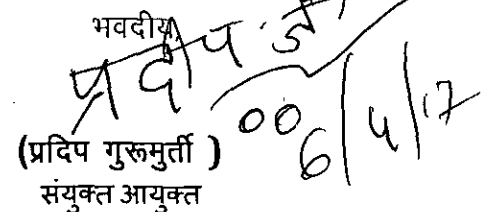 भवदीय,
प्रदीप जी
6/4/17
(प्रदिप गुरूमुर्ती )
संयुक्त आयुक्त